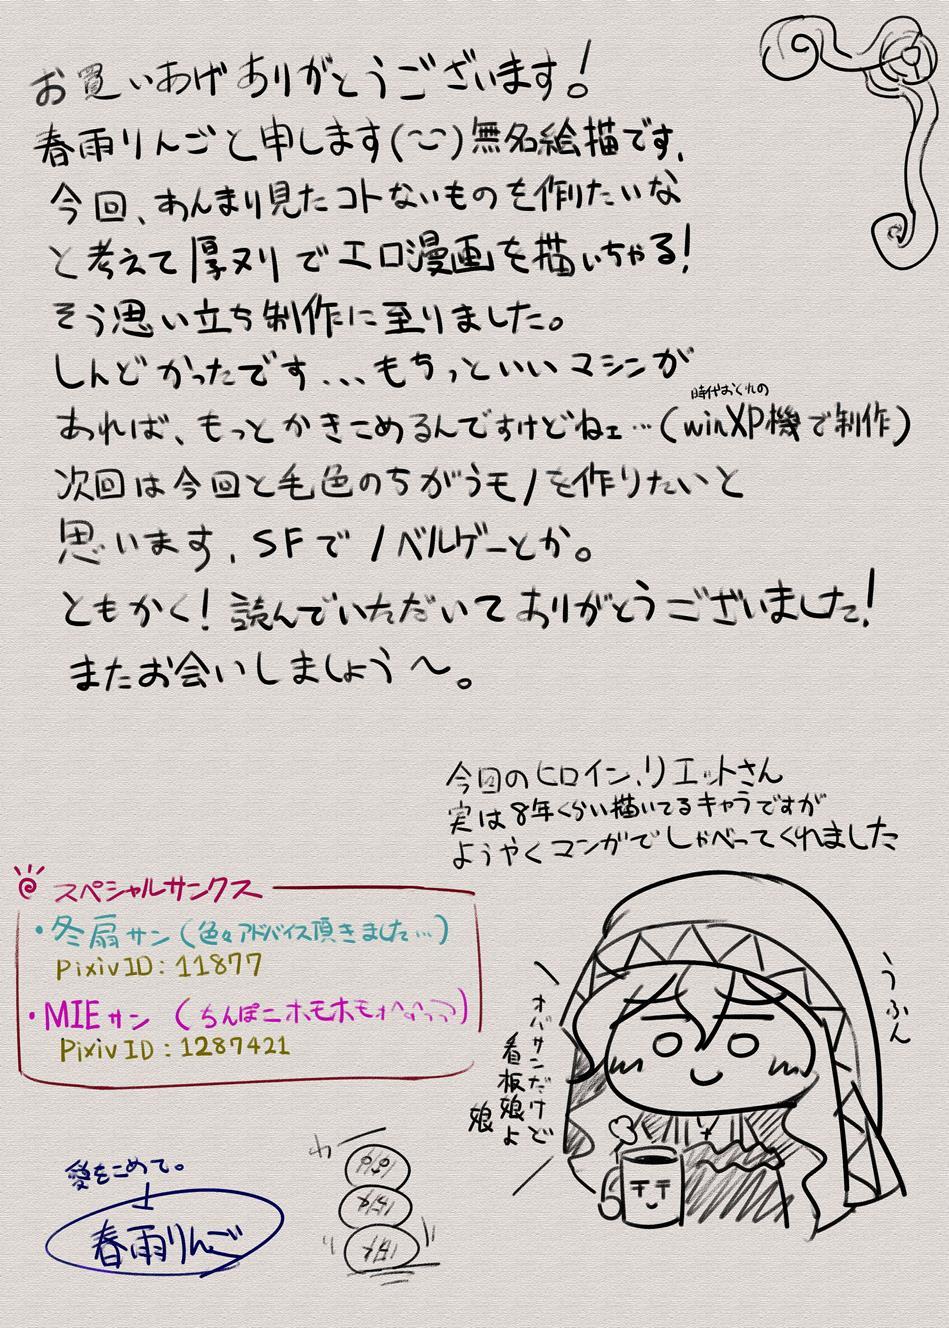 お買いあげありがとうございます!
春雨りんごと申します(ここ)無名絵描です。
今回、あんまり見たコトないものを作りたいな
と考えて厚ヌリでエロ漫画を描いちゃる!
そう思い立ち制作に至りました。
しんどかったです...もちっといいマシンが
時代おくれの
あれば、もっとかきこめるんですけどねェ…(winXP機で制作)
次回は今回と毛色のちがうモノを作りたいと
思います。SFでノベルゲーとか。
ともかく!読んでいただいてありがとうございました!
またお会いしましょう〜。
今回のヒロイン、リエットさん
実は8年くらい描いてるキャラですが
ようやくマンガでしゃべってくれました
スペシャルサンクス
・冬扇サン(色々アドバイス頂きました…)
pixivID:11877
・MIEサン(ちんぽこホモホモ
PixivID:1287421
うふん
オバサンだけど
看板娘よ
娘
愛をこめて。
春雨りんご